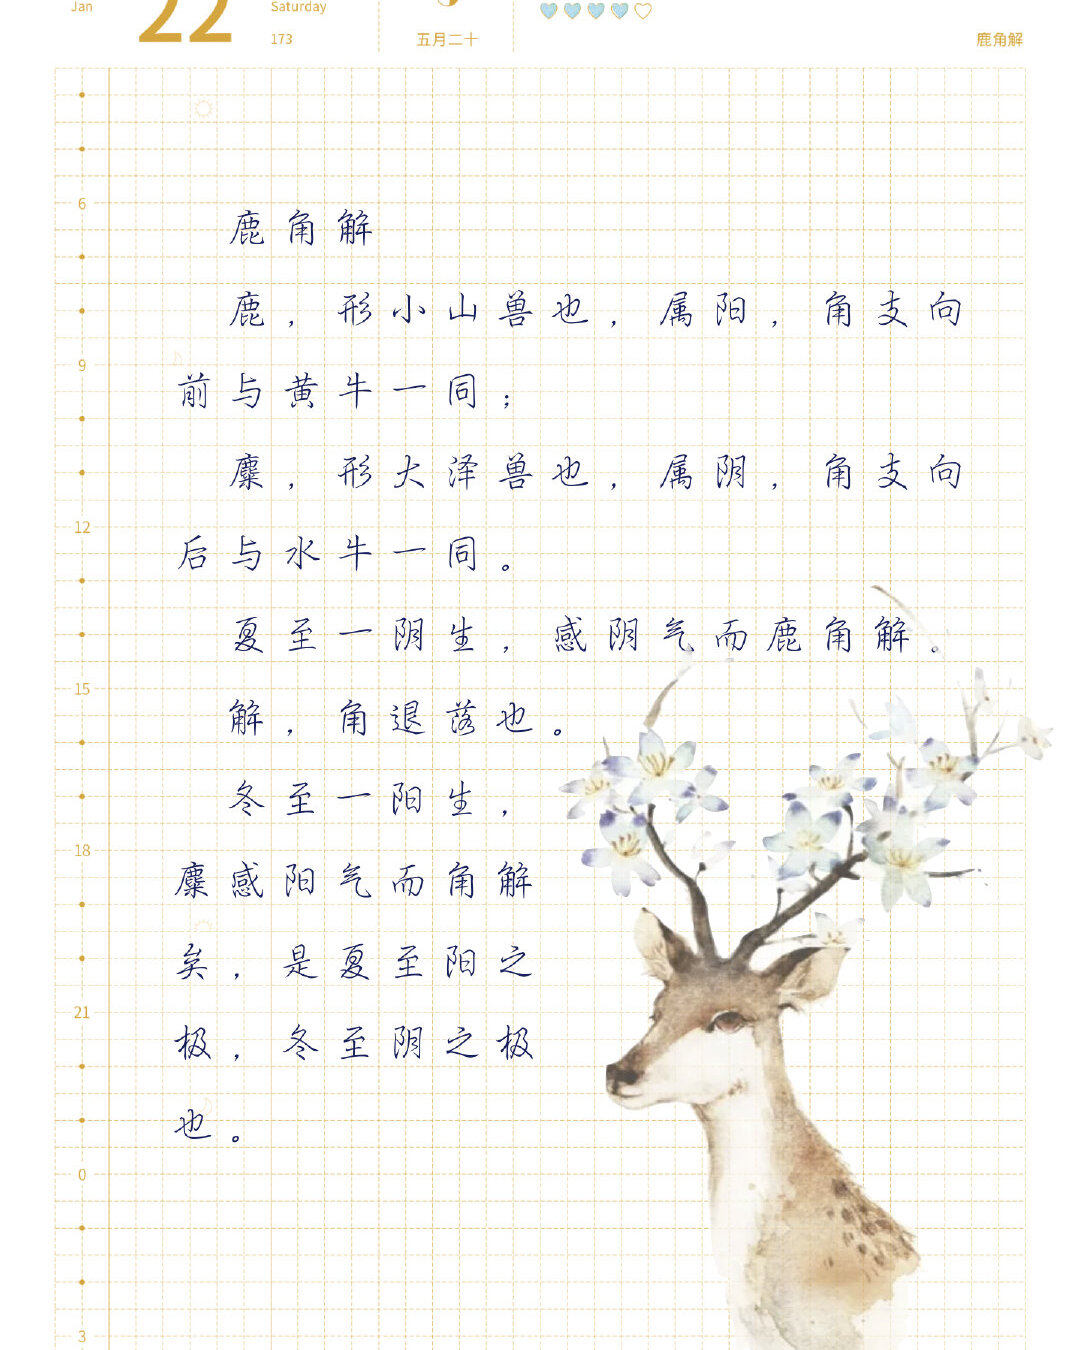 Jan 22 Saturday
173 五月二十 鹿角解
6
鹿角解
鹿，形小山兽也，属阳，角支向
9
前与黄牛一同；
麋，形大泽兽也，属阴，角支向
12
后与水牛一同。
夏至一阴生，感阴气而鹿角解。
15
解，角退落也。
冬至一阳生，
18
麋感阳气而角解
矣，是夏至阳之
21
极，冬至阴之极
也。
0
3